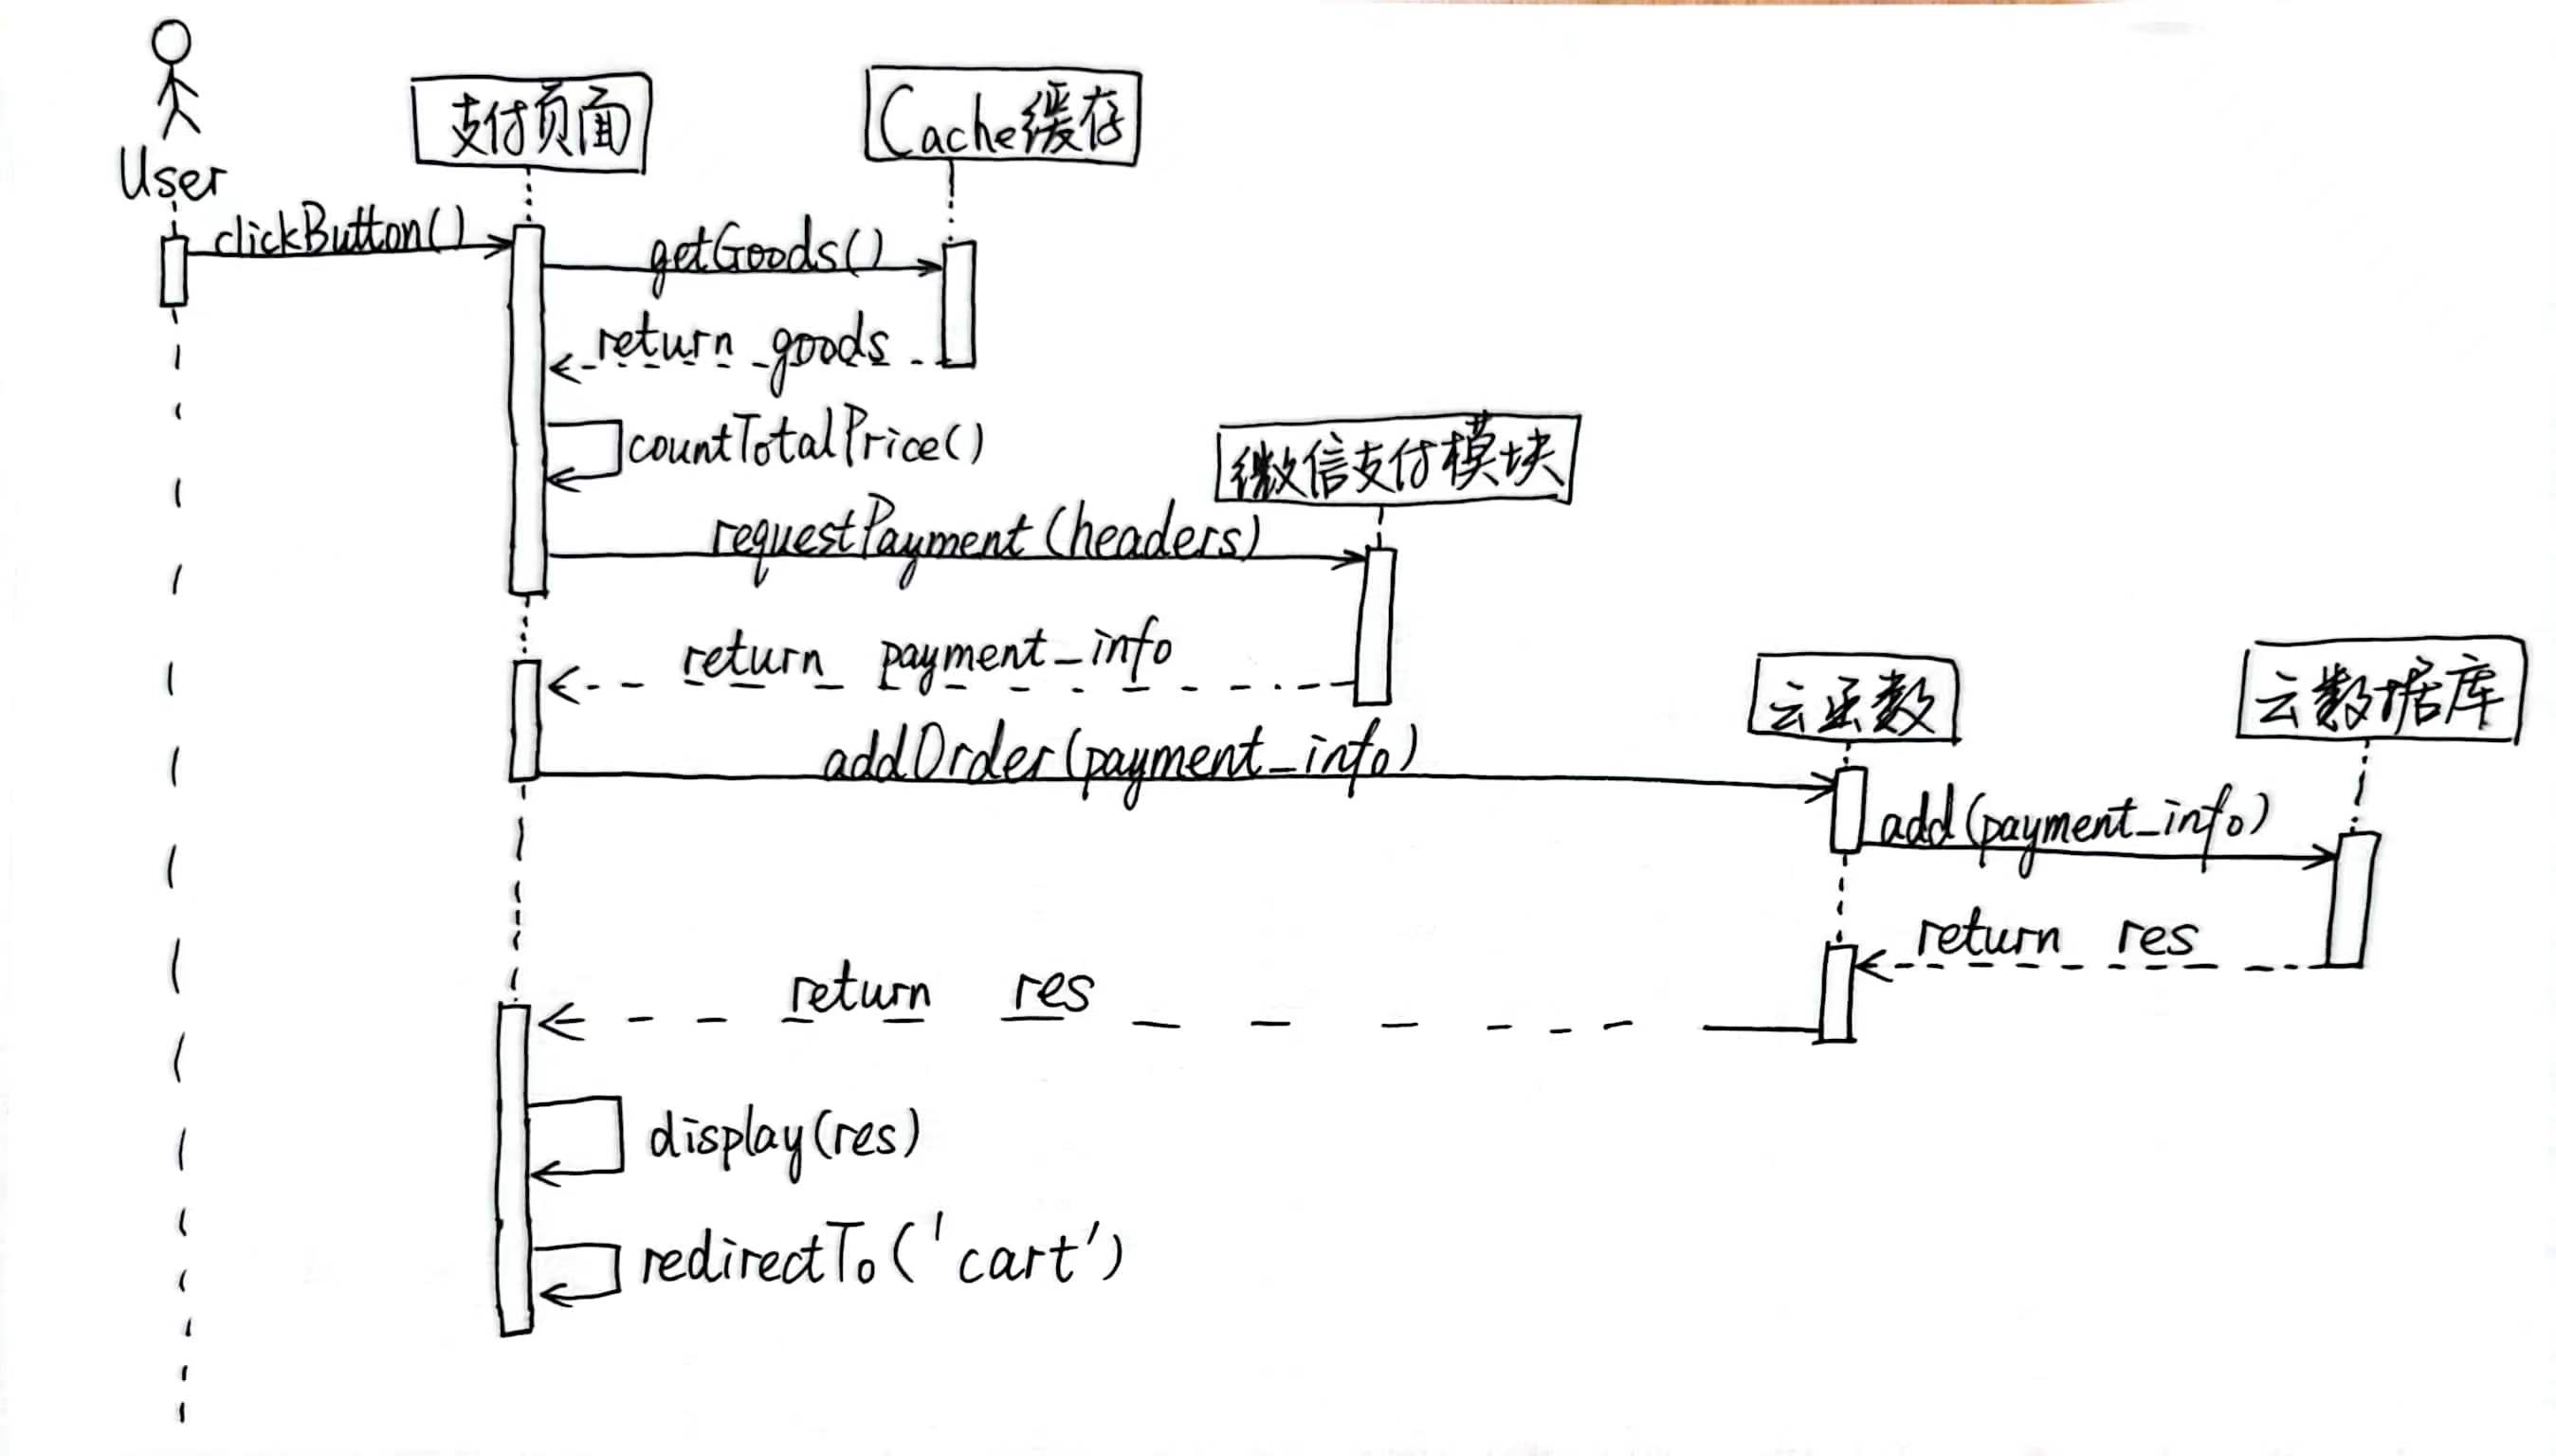 User
支付页面
Cache缓存
clickButton()
getGoods()
return goods
countTotalPrice()
微信支付模块
requestPayment(headers)
return payment_info
云函数
云数据库
addOrder(payment_info)
add(payment_info)
return res
return res
display(res)
redirectTo('cart')